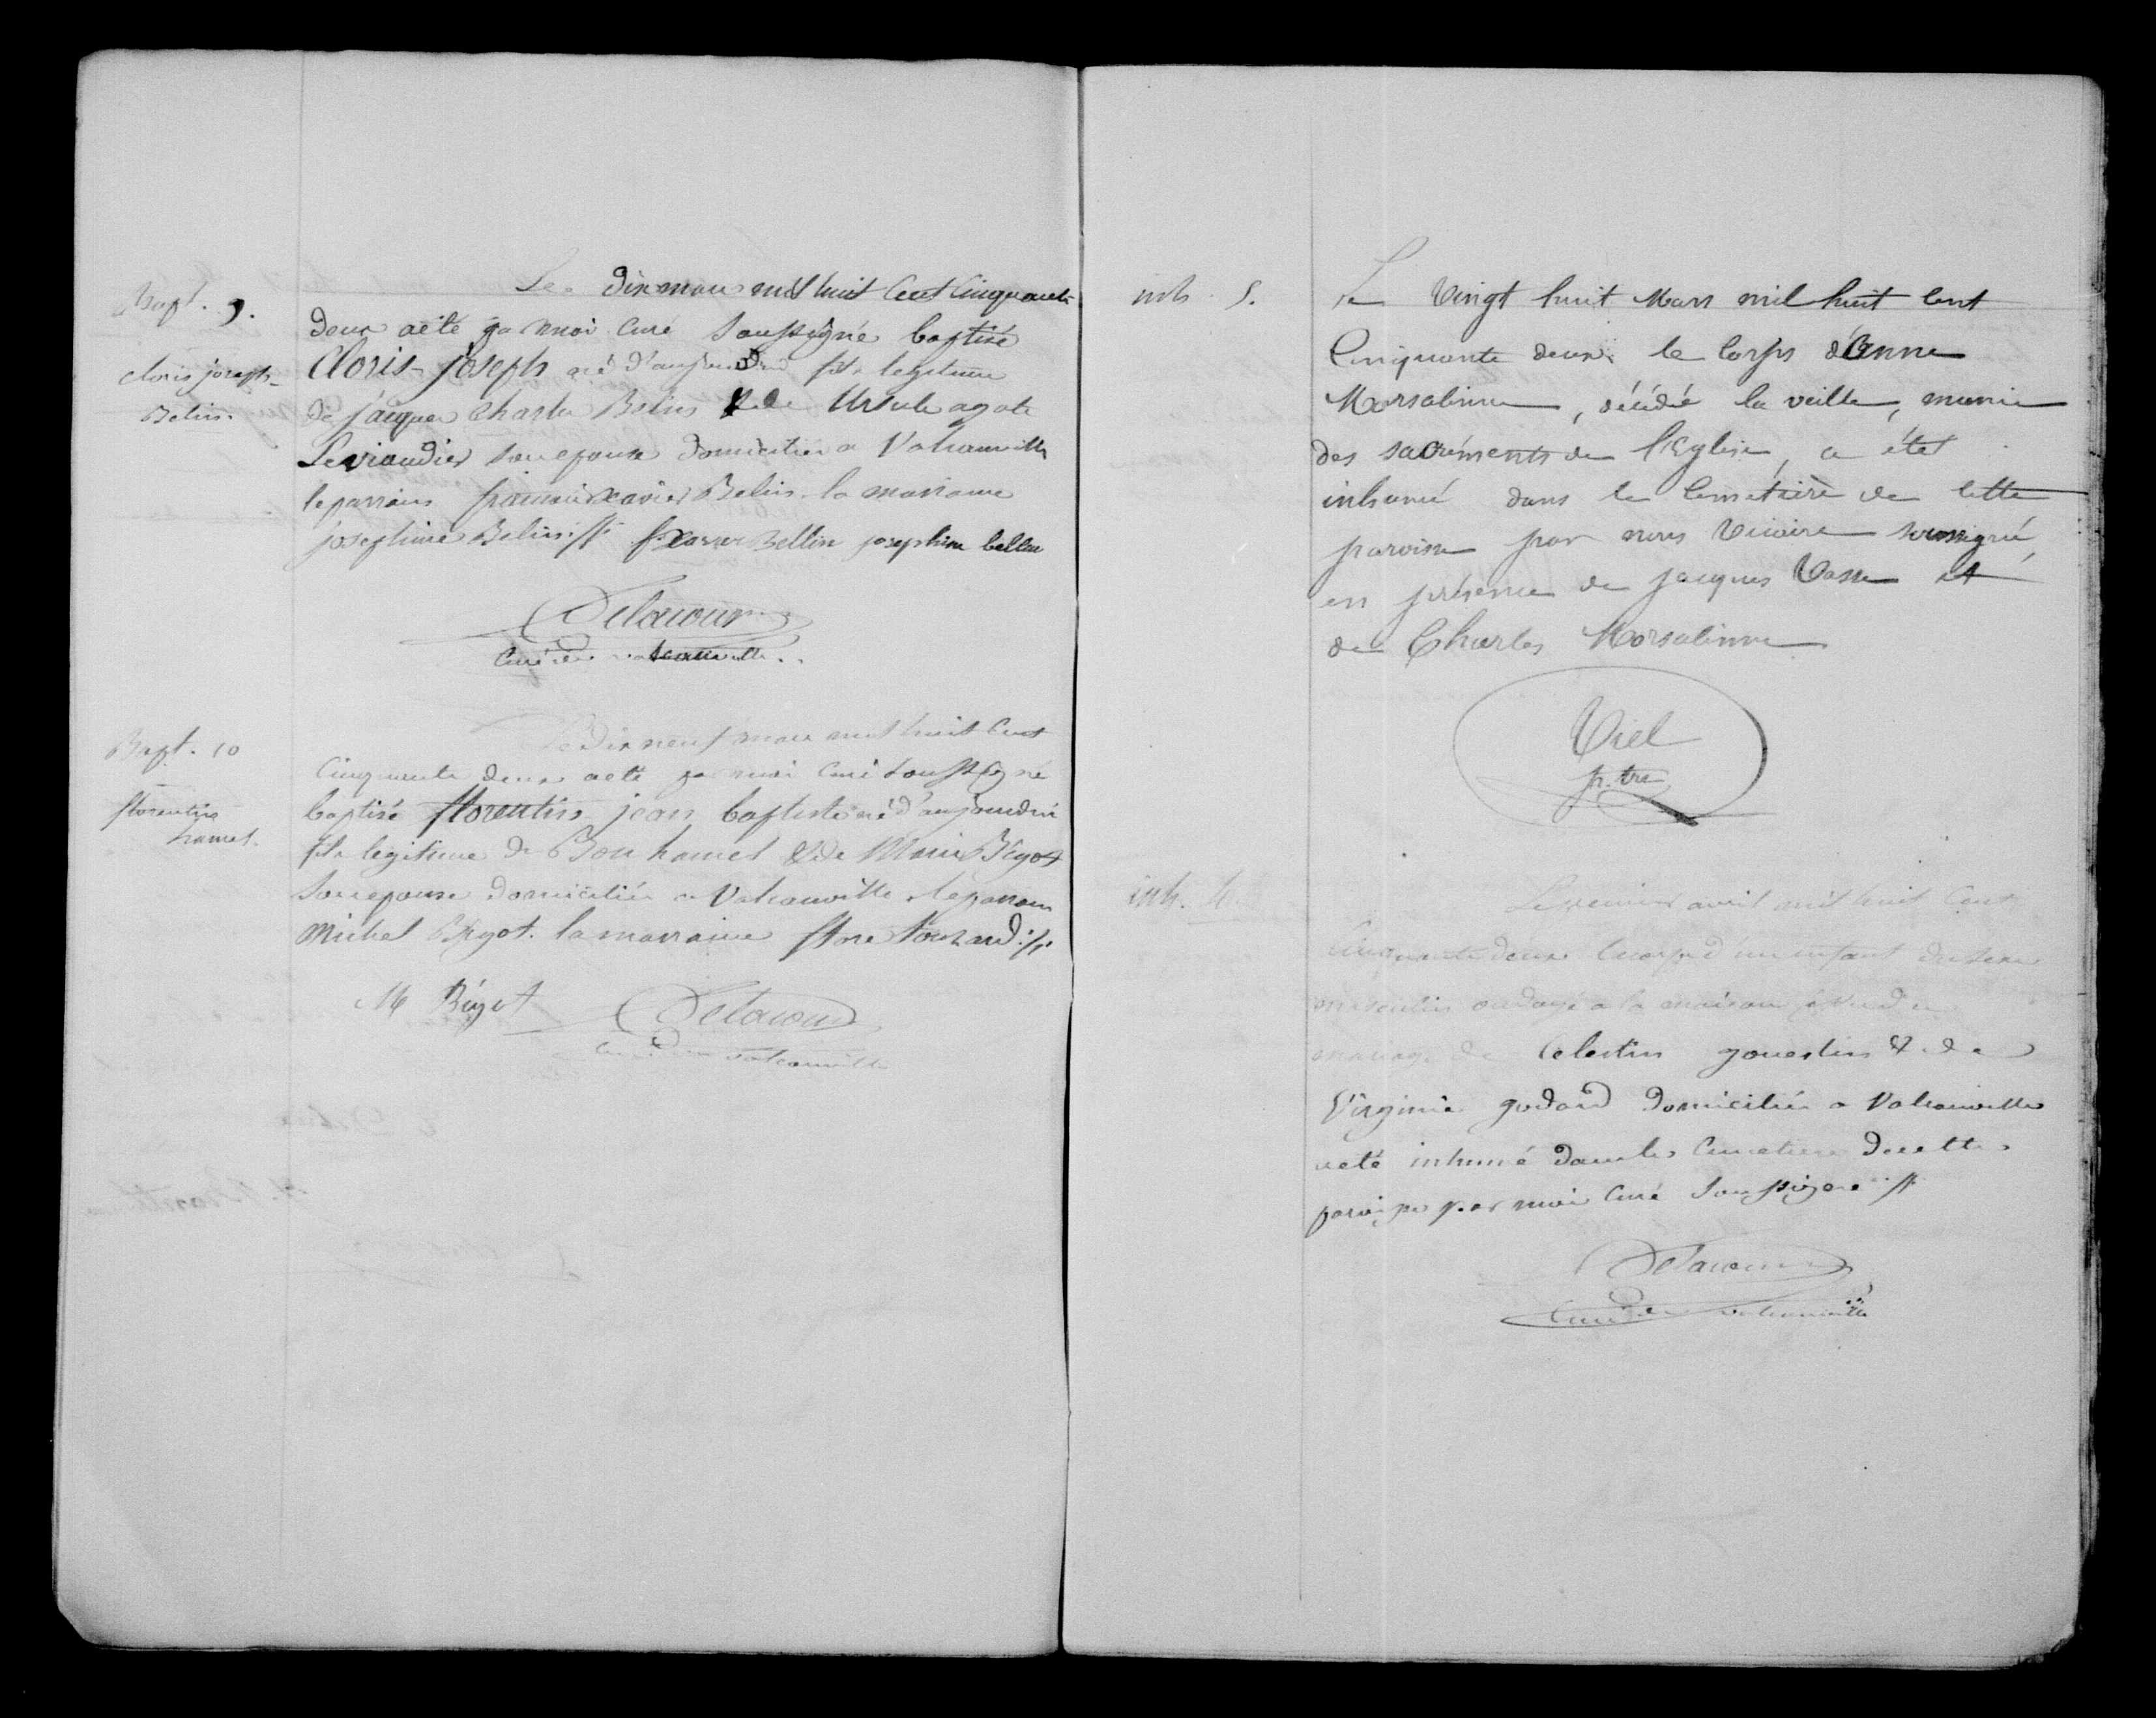 Bapt. 9.
cloris joseph
Belin.
Le dix mars mil huit cent cinquante
deux a été par moi curé soussigné baptisé
Cloris joseph né d'aujourdhui fils legitime
de jacques Charles Belin & de Ursule agate
Leviandier son epouse domiciliés a Valcanville
le parrain francois xavier Belin la marraine
josephine Belin ./.
f. Xavier Bellin josephine bellin
Delacour
Curé de valcanville
Bapt. 10
florentin
hamel.
Le dix neuf mars mil huit cent
cinquante deux a été par moi curé soussigné
baptisé florentin jean baptiste né d'aujourdhui
fils legitime de Bon hamel & de Marie Bigot
son epouse domiciliés a Valcanville. le parrain
Michel Bigot. la marraine flore touhard ./.
M Bigot
Delacour
Curé de valcanville
inh. 5.
Le Vingt huit Mars mil huit cent
cinquante deux le corps d'Anne
Morsalinne, décédé la veille, munie
des sacréments de l'Eglise, a étét
inhumé dans le cemetière de cette
paroisse par nous Vicaire soussigné,
en présence de jacques Vasse et
de Charles Morsalinne
Viel
p.tre
inh. 6
Le premier avril mil huit cent
cinquante deux le corps d'un enfant du sexe
masculin ondoyé a la maison
mariage de Celestin gouestin & de
Virginie godard domiciliés a Valcanville
a été inhumé dans le cimetiere de cette
paroisse par moi curé soussigné ./.
Delacour
Curé de valcanville